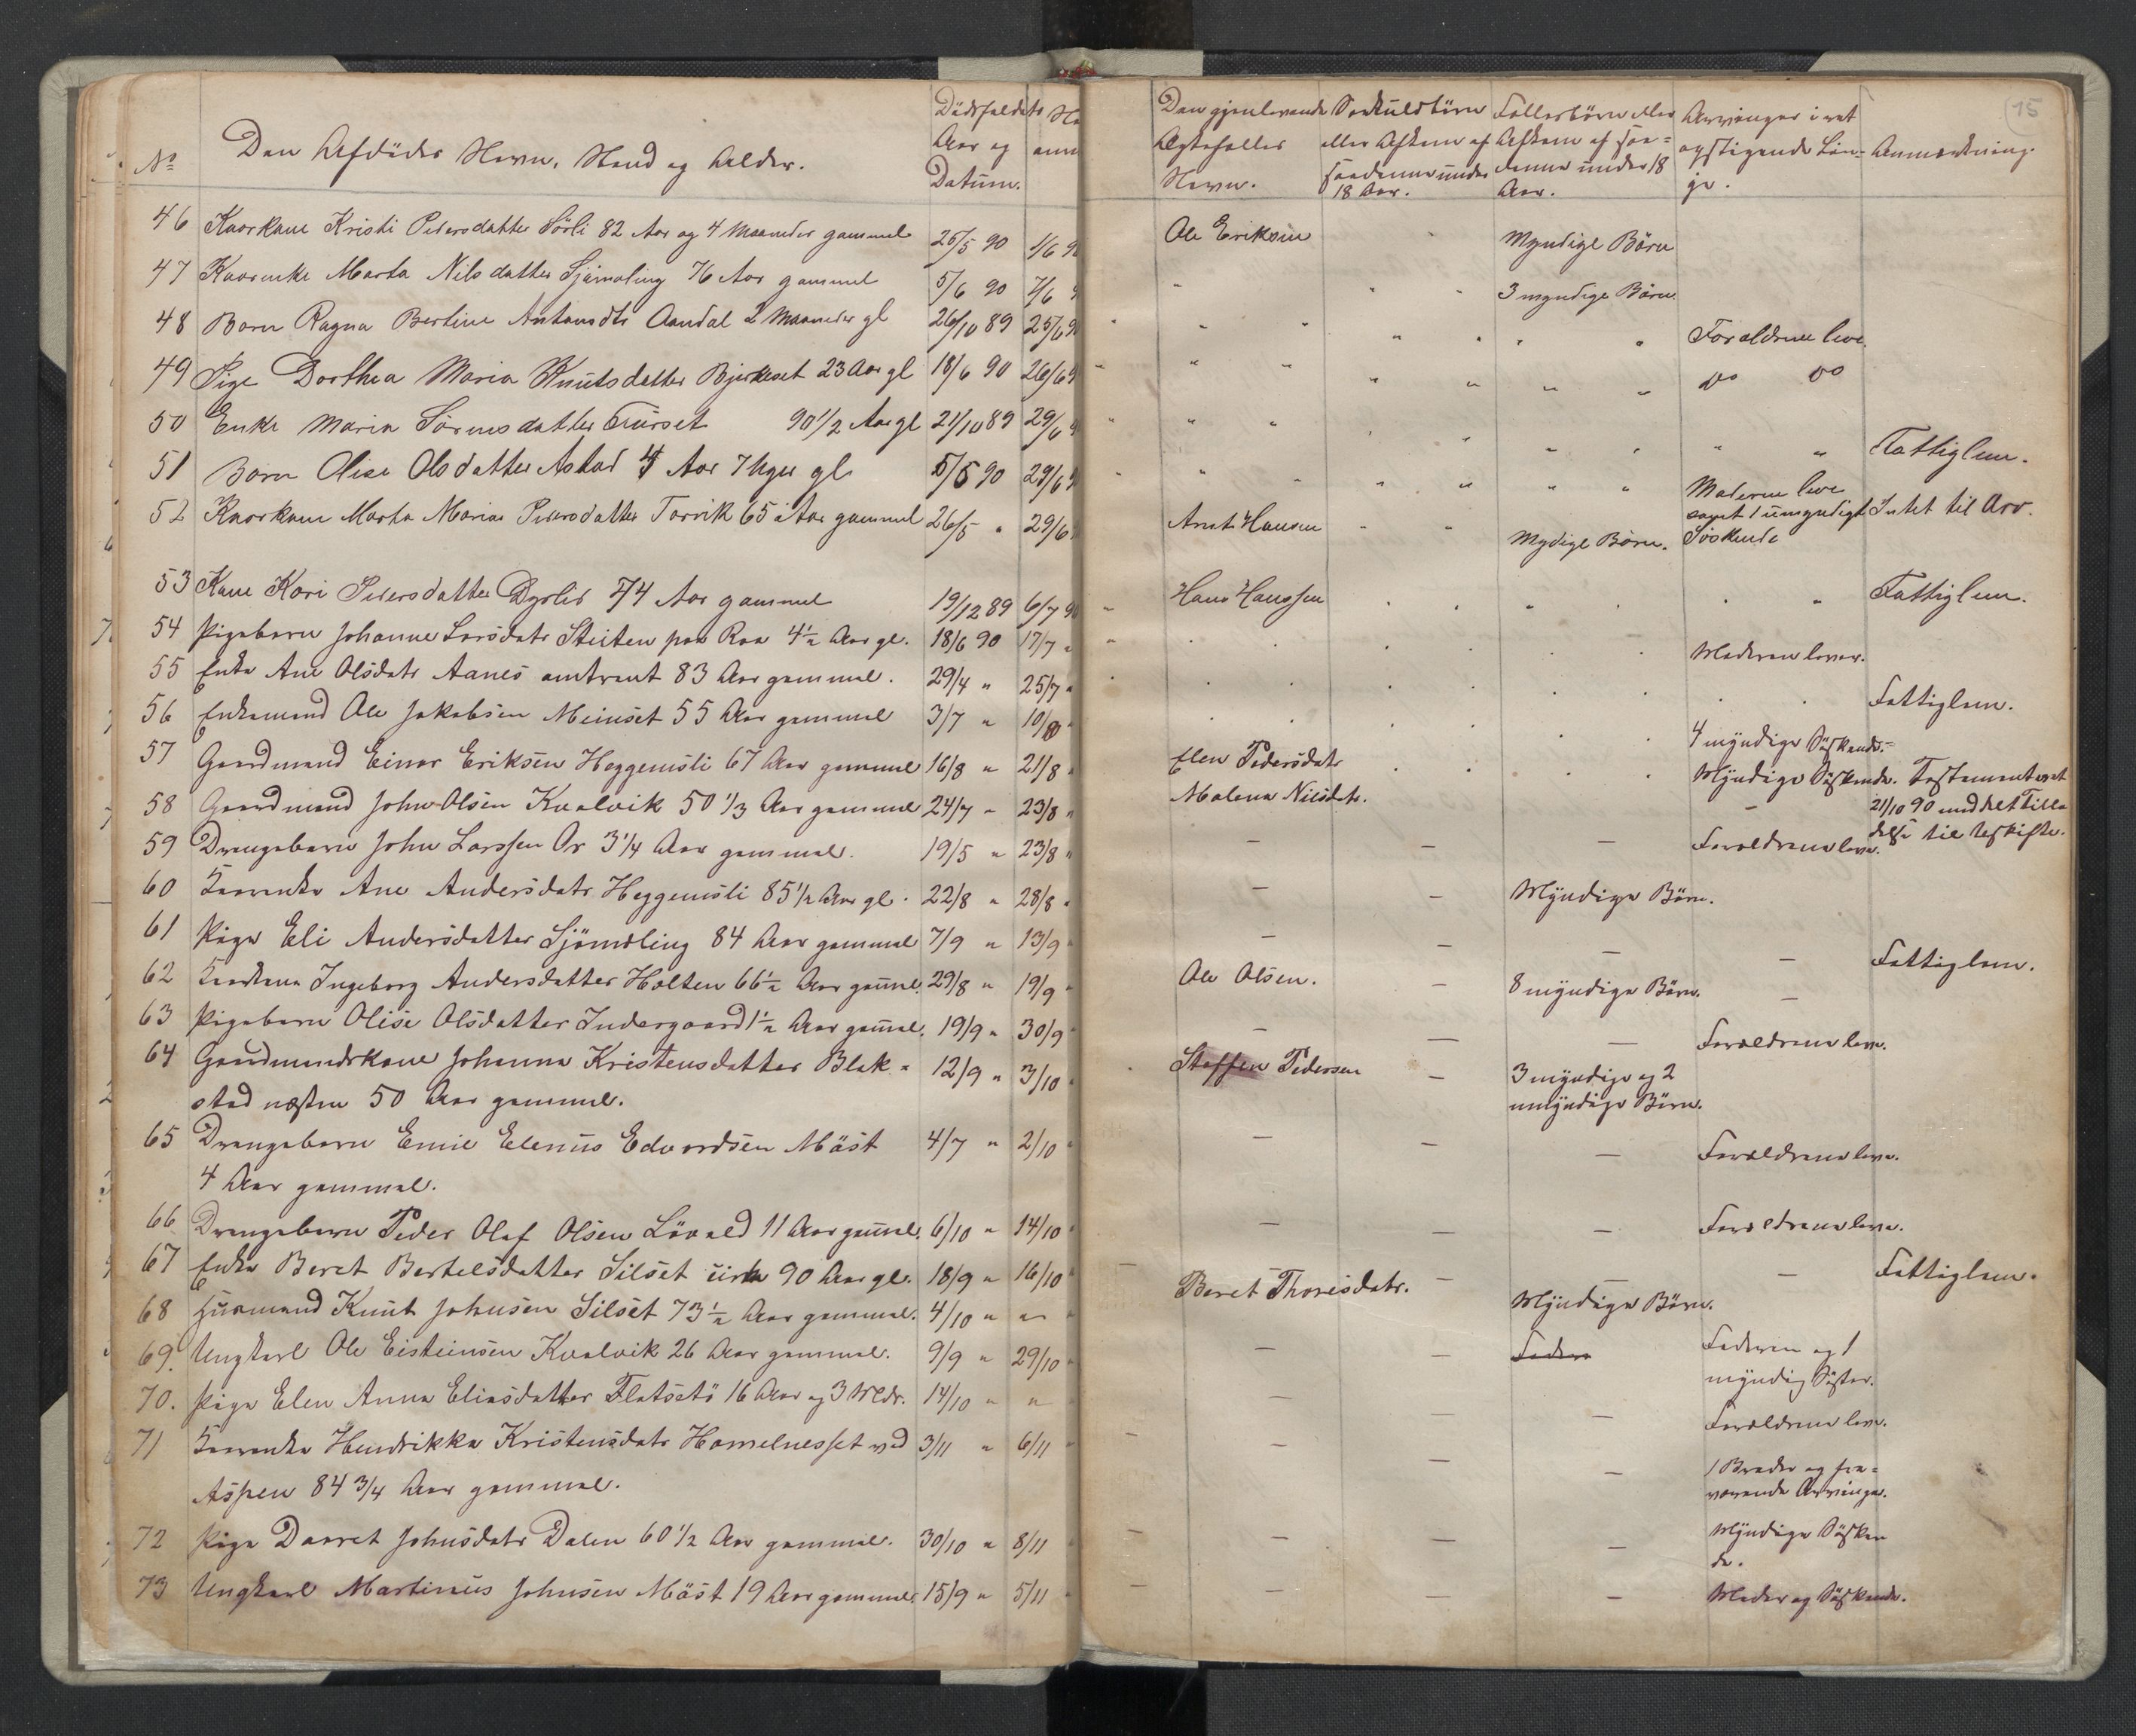 15
No
Den Afdødes Navn, Stand og Alder.
Dödsfaldets
Aar og
Datum.
anm
Den gjenlevende
Ægtefælles
Navn.
Særkuldbörn
eller Afkom af
saadanne under
18 Aar.
Fællesbörn eller
Afkom af saa=
danne under 18
Aar.
Arvinger i ret
opstigende Lin=
je.
Anmærkning.
46 Kaarkone Kristi Pedersdatter Sörli 82 Aar og 4 Maaneder gammel 25/5 90 1/6 9 Ole Eriksen Myndige Börn
47 Kaarenke Marta Nilsdatter Sjömoling 76 Aar gammel 5/6 90 7/6 " " " 3 myndige Börn.
48 Barn Ragna Bertine Antonsdtr Aandal 2 Maaneder gl 26/10 89 25/6 9 " " " " " " " Forældrene leve.
49 Pige Dorthea Maria Knutsdatter Bjerkeset 23 Aar gl 18/6 90 26/6 9 " " " " " " " do do
50 Enke Maria Sörensdatter Furset 90 1/2 Aar gl 21/10 89 29/6 " " " " " " " " " Fattiglem.
51 Barn Olise Olsdatter Astad 4 Aar 7 Uger gl 5/5 90 29/6 9 " " " " " " " Moderen leve
samt 1 umyndigt
Söskende
Intet til Arv.
52 Kaarkone Marta Maria Pedersdatter Torvik 65 Aar gammel 26/5 " 29/6 Arnt Hansen " " Mydige Börn.
53 Kone Kari Pedersdatter Dyrlid 74 Aar gammel 19/12 89 6/7 90 Hans Hanssen Fattiglem.
54 Pigebarn Johanne Larsdatr Stuten paa Roa 4½ Aar gl. 18/6 90 17/7 " Moderen lever.
55 Enke Ane Olsdatr Aanes omtrent 83 Aar gammel. 29/4 " 25/7 " Fattiglem.
56 Enkemand Ole Jakobsen Meinset 55 Aar gammel 3/7 " 10/8 4 myndige Söskende.
57 Gaardmand Einar Eriksen Heggemsli 67 Aar gammel 16/8 " 21/8 Elen Pedersdatr Myndige Söskende. Testamenteret
21/10 90 meddelt Tilla
delse til Uskifte.
58 Gaardmand John Olsen Kvalvik 50 1/3 Aar gammel 24/7 " 23/8 " Malena Nilsdtr. -
59 Drengebarn John Larssen Or 3 1/4 Aar gammel. 19/5 " 23/8 " - - - Forældrene leve.
60 Kaarenke Ane Andersdatr Heggemsli 85 1/2 Aar gl. 22/8 " 28/8 " - - Myndige Börn.
61 Pige Eli Andersdatter Sjömoling 84 Aar gammel 7/9 " 13/9 - - - - Fattiglem.
62 Kaarkone Ingeborg Andersdatter Holten 66½ Aar gammel. 29/8 " 19/9 Ole Olsen. - 8 myndige Börn. -
63 Pigebarn Olise Olsdatter Indergaard 1½ Aar gammel. 19/9 " 30/9 - - - Forældrene leve.
64 Gaardmandskone Johanna Kristensdatter Blak= 12/9 " 3/10 Steffen Pedersen - 3 myndige og 2
stad næsten 50 Aar gammel. umyndige Börn.
65 Drengebarn Emil Elenus Edvardsen Mäst 4/7 " 2/10 - - - Forældrene leve.
4 Aar gammel.
66 Drengebarn Peder Olaf Olsen Lövold 11 Aar gammel. 6/10 " 14/10 - - - Forældrene leve.
67 Enke Beret Bertelsdatter Silset cirka 90 Aar gl. 18/9 " 16/10 - - - - Fattiglem.
68 Husmand Knut Johnsen Silset 73½ Aar gammel. 4/10 " " Beret Thoresdatr. Myndige Börn.
69. Ungkarl Ole Eisteinsen Kvalvik 26 Aar gammel. 9/9 " 29/10 - - Faderen Faderen og 1
myndig Söster.
70. Pige Elen Anna Eliasdatter Flatsetö 16 Aar og 3 Mdr. 14/10 " " - - - Forældrene leve.
71 Kaarenke Hendrikka Kristensdatr Hamelnesset ved 3/11 " 6/11 - - - 1 Broder og fra=
Aspen 84 3/4 Aar gammel. værende Arvinger.
72 Pige Daaret Johnsdatr Dalen 60 1/2 Aar gammel. 30/10 " 8/11 - - - Myndige Sösken
de.
73 Ungkarl Martinus Johnsen Mäst 19 Aar gammel. 15/9 " 5/11 - - - Moder og Söskende.